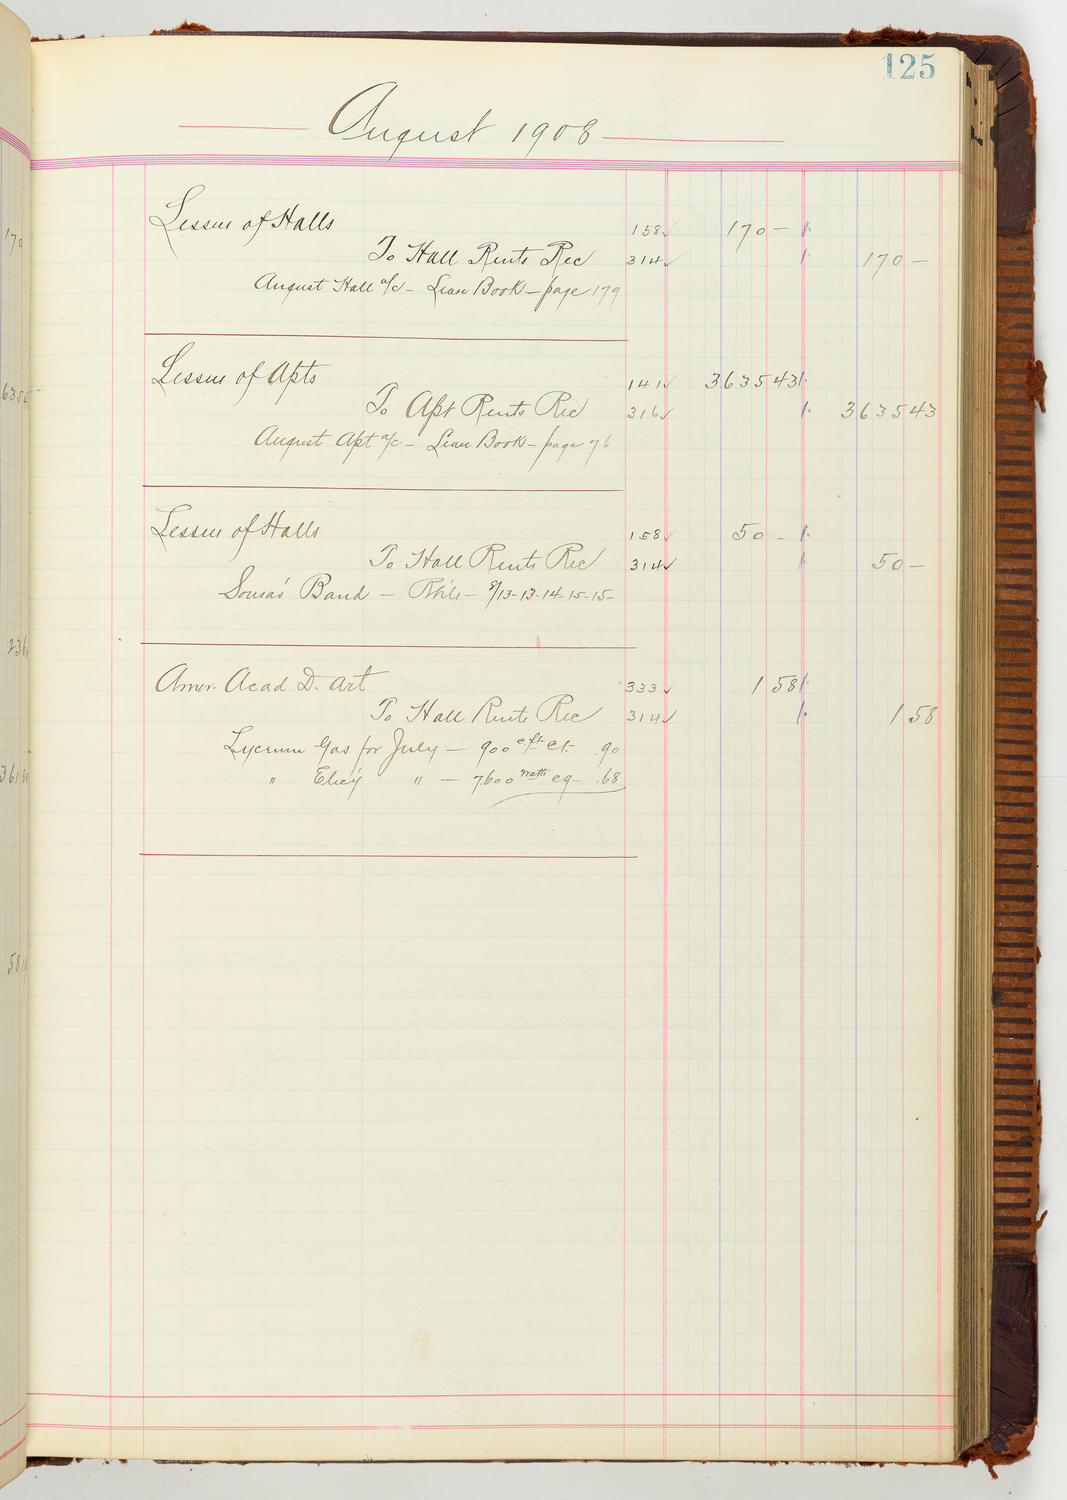 125
August 1908
Lessees of Halls 158✓ 170 —
To Hall Rents Rec 314✓ 170 —
August Hall a/c — Lease Book — page 179
Lessees of Apts 141✓ 3635 43
To Apt Rents Rec 316✓ 3635 43
August Apt a/c — Lease Book — page 76
Lessees of Halls 158✓ 50 —
To Hall Rents Rec 314✓ 50 —
Sousa's Band — Rh'ls — 8/13-13-14-15-15-
Amer. Acad D. Art 333✓ 1 58
To Hall Rents Rec 314✓ 1 58
Lyceum Gas for July — 900 c ft .90
" Elec'y " — 7600 watts .68
170
236